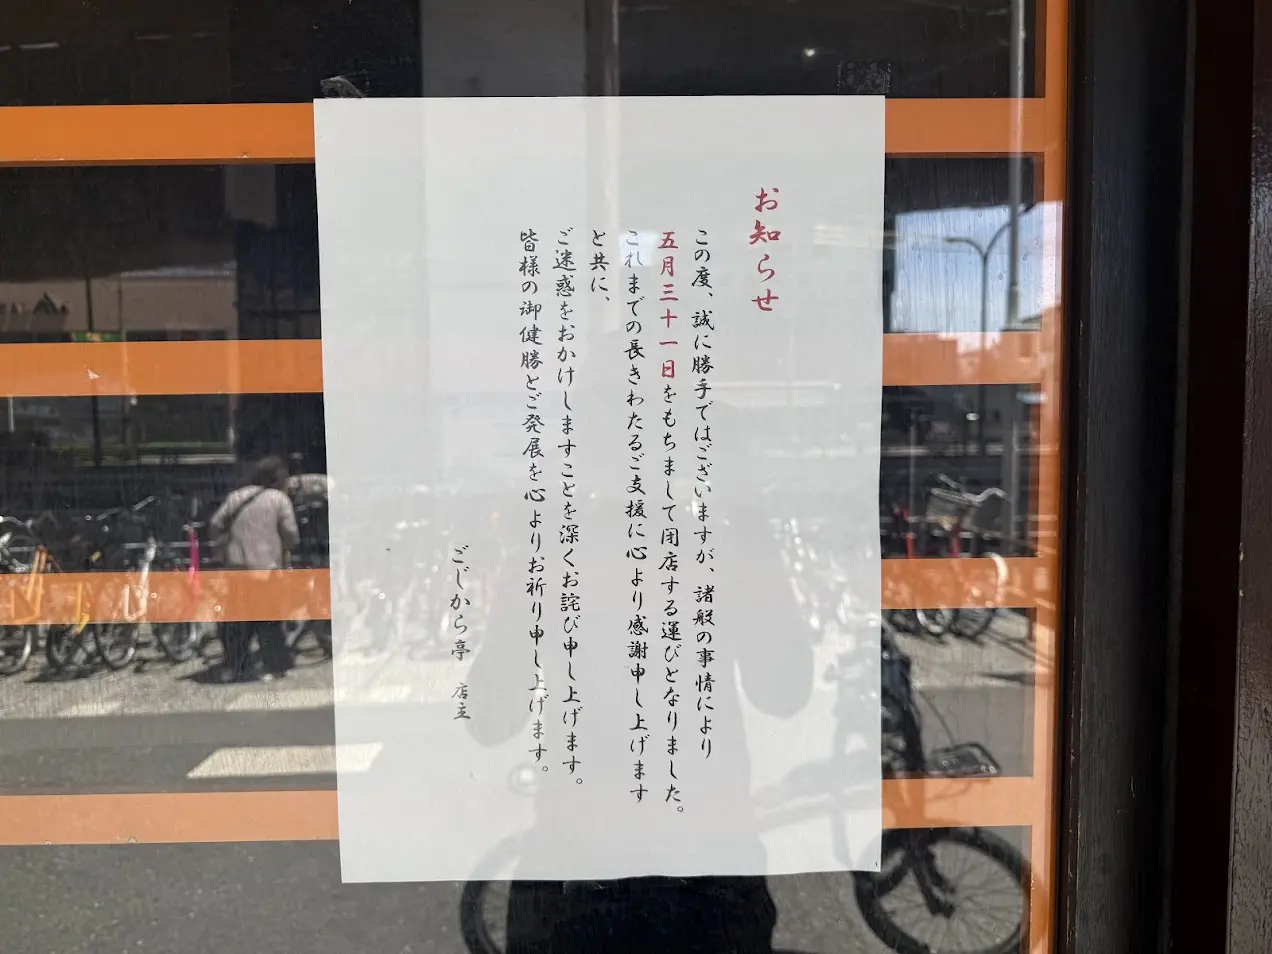 お知らせ
この度、誠に勝手ではございますが、諸般の事情により
五月三十一日をもちまして閉店する運びとなりました。
これまでの長きわたるご支援に心より感謝申し上げます
と共に、
ご迷惑をおかけしますことを深くお詫び申し上げます。
皆様の御健勝とご発展を心よりお祈り申し上げます。
ごじから亭 店主